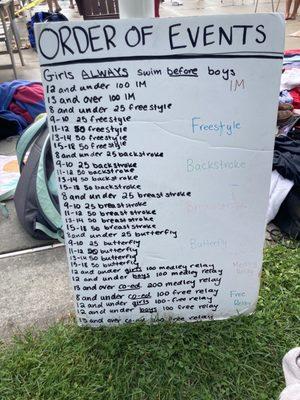 ORDER OF EVENTS
Girls ALWAYS swim before boys
12 and under 100 IM
13 and over 100 IM
IM
8 and under 25 freestyle
9-10 25 freestyle
11-12 50 freestyle
Freestyle
13-14 50 freestyle
15-18 50 freestyle
8 and under 25 backstroke
9-10 25 backstroke
11-12 50 backstroke
Backstroke
13-14 50 backstroke
15-18 50 backstroke
8 and under 25 breaststroke
9-10 25 breaststroke
11-12 50 breaststroke
Breaststroke
13-14 50 breaststroke
15-18 50 breaststroke
8 and under 25 butterfly
9-10 25 butterfly
11-12 50 butterfly
Butterfly
13-14 50 butterfly
15-18 50 butterfly
12 and under girls 100 medley relay
12 and under boys 100 medley relay
Medley Relay
13 and over co-ed 200 medley relay
8 and under co-ed 100 free relay
12 and under girls 100 free relay
Free Relay
12 and under boys 100 free relay
13 and over co-ed free relay